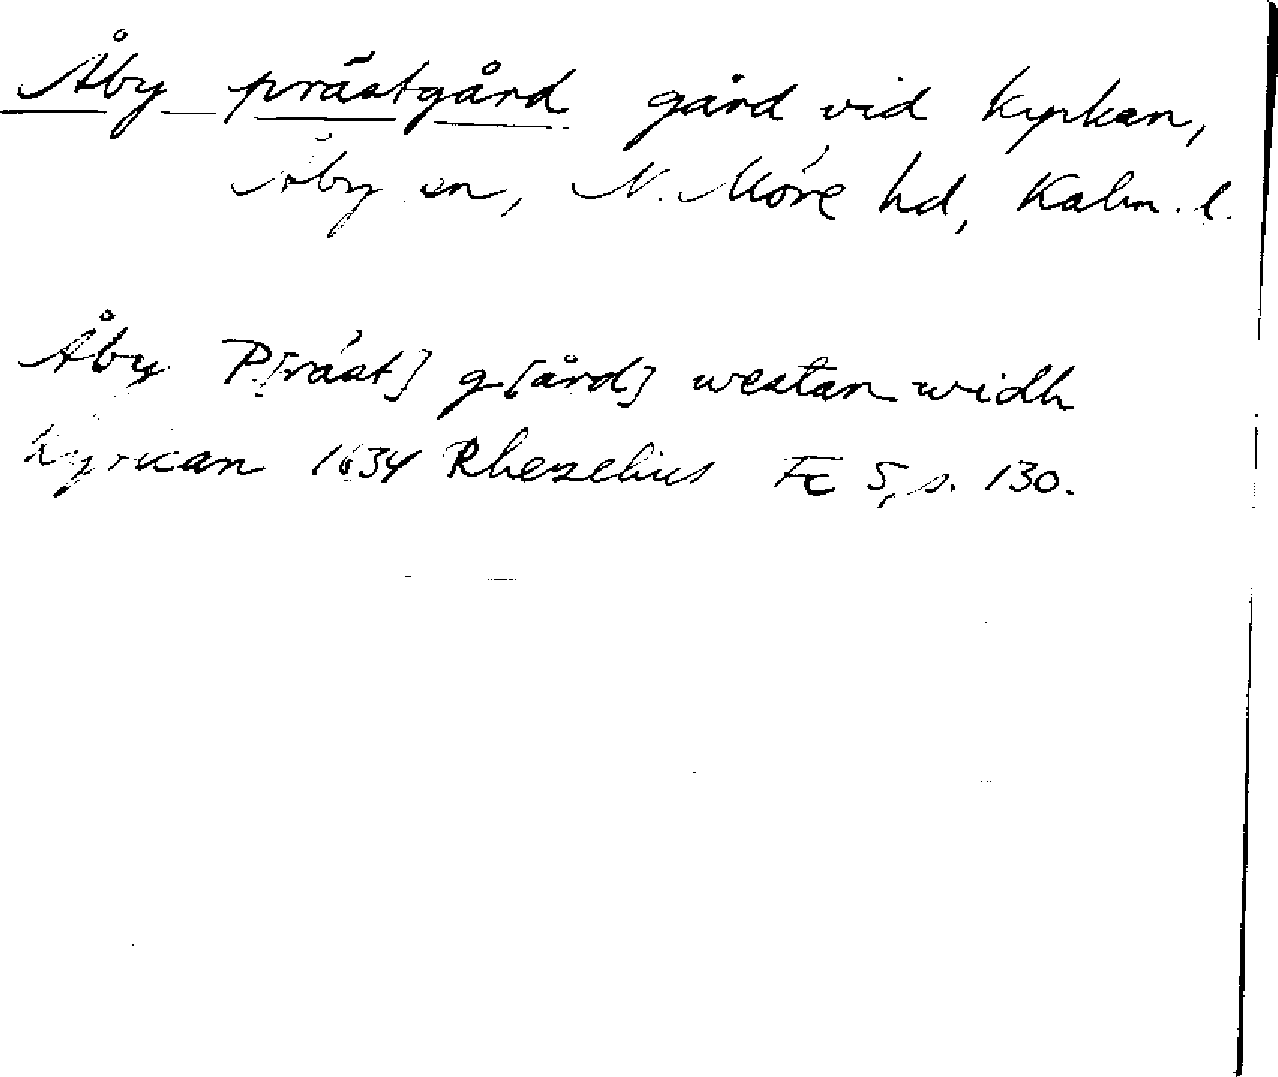 Åby prästgård gård vid kyrkan,
Åby sn, N. Möre hd, Kalm. l.
Åby P[räst] g[ård] westan widh
kyrkan 1634 Rhezelius FC 5, s. 130.